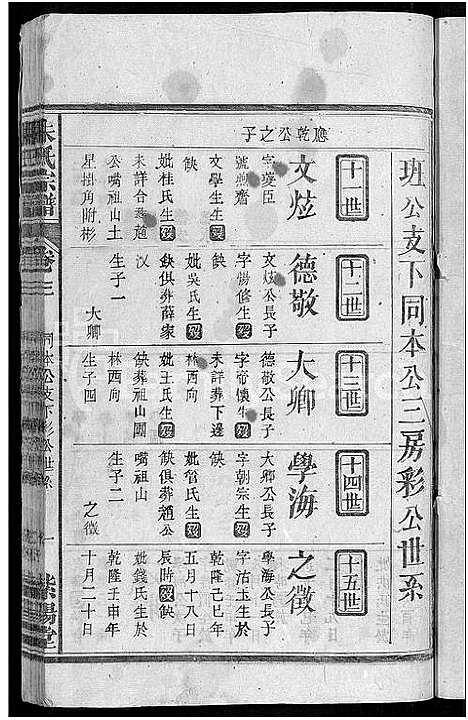 班公支下同本公三房彩公世系
十一世
應乾公之子
文炫
字燮臣
號燃齋
文學生生歿
缺
妣桂氏生歿
未詳合葬趙
公嘴祖山土
星掛角附彬
十二世
德敬
文炫公長子
字惕修生歿
缺
妣吳氏生歿
缺俱葬薛家
汊
生子一
大卿
十三世
大卿
德敬公長子
字帝懷生歿
未詳葬下邊
林西向
妣王氏生歿
缺葬祖山園
林西向
生子四
十四世
學海
大卿公長子
字朝宗生歿
缺
妣管氏生歿
缺俱葬趙公
嘴祖山
生子二
之徵
十五世
之徵
學海公長子
字沽玉生於
乾隆己巳年
五月十八日
辰時歿缺
妣錢氏生於
乾隆壬申年
十月二十日
朱氏宗譜
卷三
同本公支下彩公世系
一
紫陽堂